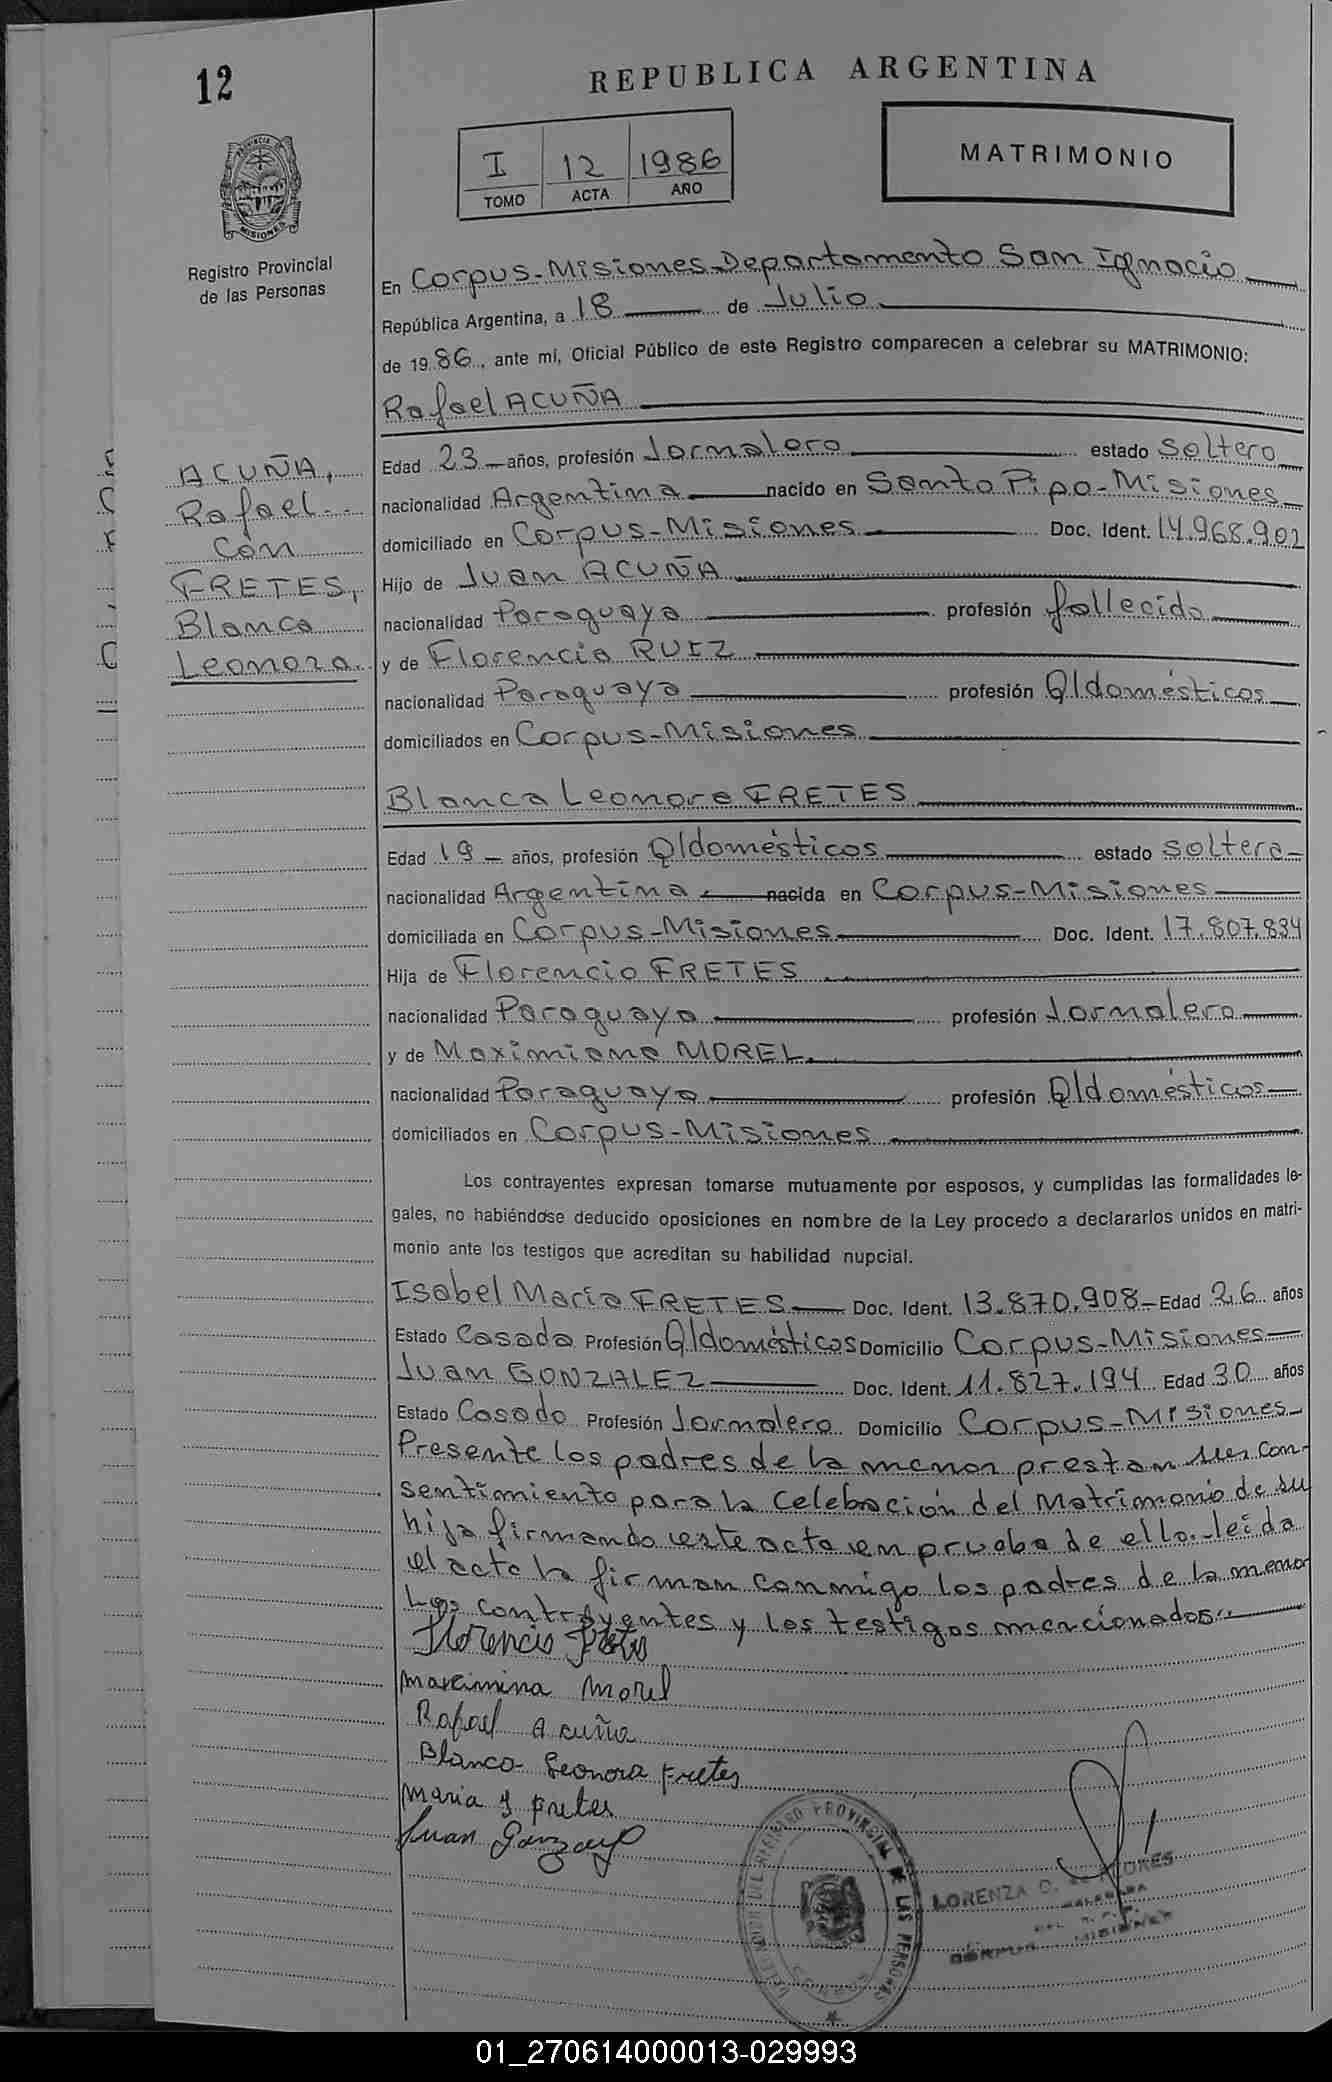 12
REPUBLICA ARGENTINA
I 12 1986
TOMO ACTA AÑO
MATRIMONIO
PROVINCIA DE
MISIONES
Registro Provincial
de las Personas
ACUÑA,
Rafael
con
FRETES,
Blanca
Leonora
En Corpus-Misiones-Departamento San Ignacio
República Argentina, a 18 de Julio
de 1986, ante mí, Oficial Público de este Registro comparecen a celebrar su MATRIMONIO:
Rafael ACUÑA
Edad 23 años, profesión Jornalero estado soltero
nacionalidad Argentina nacido en Santo Pipo-Misiones
domiciliado en Corpus-Misiones Doc. Ident. 14.968.902
Hijo de Juan ACUÑA
nacionalidad Paraguaya profesión fallecido
y de Florencia RUIZ
nacionalidad Paraguaya profesión Q/domésticos
domiciliados en Corpus-Misiones
Blanca Leonora FRETES
Edad 19 años, profesión Q/domésticos estado soltera
nacionalidad Argentina nacida en Corpus-Misiones
domiciliada en Corpus-Misiones Doc. Ident. 17.807.834
Hija de Florencio FRETES
nacionalidad Paraguaya profesión Jornalero
y de Maximiana MOREL
nacionalidad Paraguaya profesión Q/domésticos
domiciliados en Corpus-Misiones
Los contrayentes expresan tomarse mutuamente por esposos, y cumplidas las formalidades le-
gales, no habiéndose deducido oposiciones en nombre de la Ley procedo a declararlos unidos en matri-
monio ante los testigos que acreditan su habilidad nupcial.
Isabel María FRETES Doc. Ident. 13.870.908 Edad 26 años
Estado Casada Profesión Q/domésticos Domicilio Corpus-Misiones
Juan GONZALEZ Doc. Ident. 11.827.194 Edad 30 años
Estado Casado Profesión Jornalero Domicilio Corpus-Misiones
Presente los padres de la menor prestan su con-
sentimiento para la celebración del Matrimonio de su
hija firmando este acta en prueba de ello.-leída
el acta la firman conmigo los padres de la menor
los contrayentes y los testigos mencionados.-
Florencio Fretes
Maximina Morel
Rafael Acuña
Blanca Leonora Fretes
Maria I Fretes
Juan
DELEGACION DEL REGISTRO PROVINCIAL DE LAS PERSONAS
CORPUS
LORENZA
CORPUS MISIONES
01_270614000013-029993